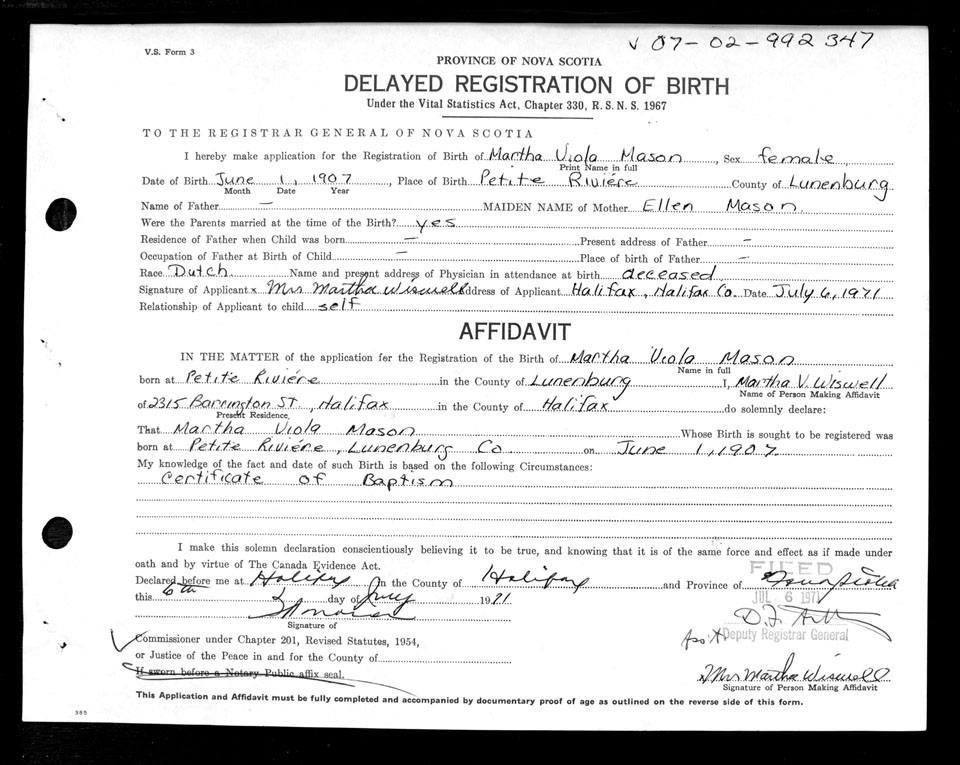 V.S. Form 3
√ 07-02-992347
PROVINCE OF NOVA SCOTIA
DELAYED REGISTRATION OF BIRTH
Under the Vital Statistics Act, Chapter 330, R. S. N. S. 1967
TO THE REGISTRAR GENERAL OF NOVA SCOTIA
I hereby make application for the Registration of Birth of Martha Viola Mason, Sex female
Print Name in full
Date of Birth June 1, 1907, Place of Birth Petite Riviére County of Lunenburg
Month Date Year
Name of Father — MAIDEN NAME of Mother Ellen Mason
Were the Parents married at the time of the Birth? yes
Residence of Father when Child was born — Present address of Father —
Occupation of Father at Birth of Child — Place of birth of Father —
Race Dutch Name and present address of Physician in attendance at birth deceased
Signature of Applicant x Mrs Martha Wiswell Address of Applicant Halifax, Halifax Co. Date July 6, 1971
Relationship of Applicant to child self
AFFIDAVIT
IN THE MATTER of the application for the Registration of the Birth of Martha Viola Mason
Name in full
born at Petite Riviére in the County of Lunenburg I, Martha V. Wiswell
Name of Person Making Affidavit
of 2315 Barrington ST., Halifax in the County of Halifax do solemnly declare:
Present Residence,
That Martha Viola Mason Whose Birth is sought to be registered was
born at Petite Riviére, Lunenburg Co on June 1, 1907.
My knowledge of the fact and date of such Birth is based on the following Circumstances:
Certificate of Baptism
I make this solemn declaration conscientiously believing it to be true, and knowing that it is of the same force and effect as if made under
oath and by virtue of The Canada Evidence Act.
FILED
Declared before me at Halifax in the County of Halifax and Province of Nova Scotia
this 6th day of July 1971
JUL 6 1971
Signature of
Ass't Deputy Registrar General
Commissioner under Chapter 201, Revised Statutes, 1954,
or Justice of the Peace in and for the County of
If sworn before a Notary Public affix seal.
Mrs Martha Wiswell
Signature of Person Making Affidavit
This Application and Affidavit must be fully completed and accompanied by documentary proof of age as outlined on the reverse side of this form.
385